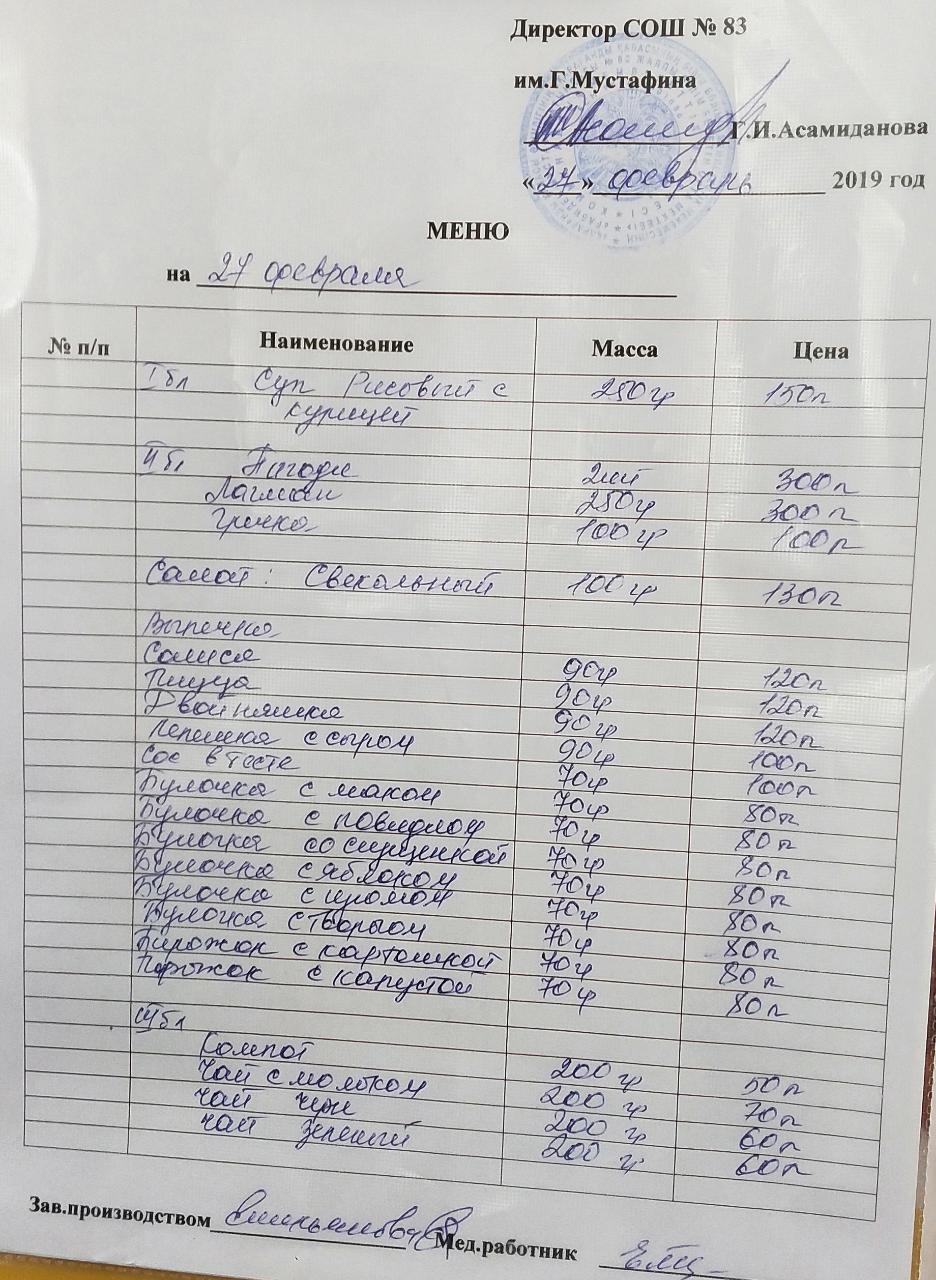 Директор СОШ № 83
им.Г.Мустафина
Г.И.Асамиданова
«27» февраль 2019 год
МЕНЮ
на 27 февраля
№ п/п Наименование Масса Цена
I бл Суп Рисовый с 250гр 150т
курицей
II бл Пигоди 2шт 300т
Лагман 250гр 300т
Гречка 100гр 100т
Салат: Свекольный 100гр 130т
Выпечка
Самса 90гр 120т
Пицца 90гр 120т
Двойняшка 90гр 120т
Лепешка с сыром 90гр 100т
Сос в тесте 70гр 100т
Булочка с маком 70гр 80т
Булочка с повидлом 70гр 80т
Булочка со сгущенкой 70гр 80т
Булочка с яблоком 70гр 80т
Булочка с изюмом 70гр 80т
Булочка с творогом 70гр 80т
Пирожок с картошкой 70гр 80т
Пирожок с капустой 70гр 80т
III бл
Компот 200гр 50т
Чай с молоком 200 гр 70т
чай черн 200 гр 60т
чай зеленый 200 гр 60т
Зав.производством Мед.работник